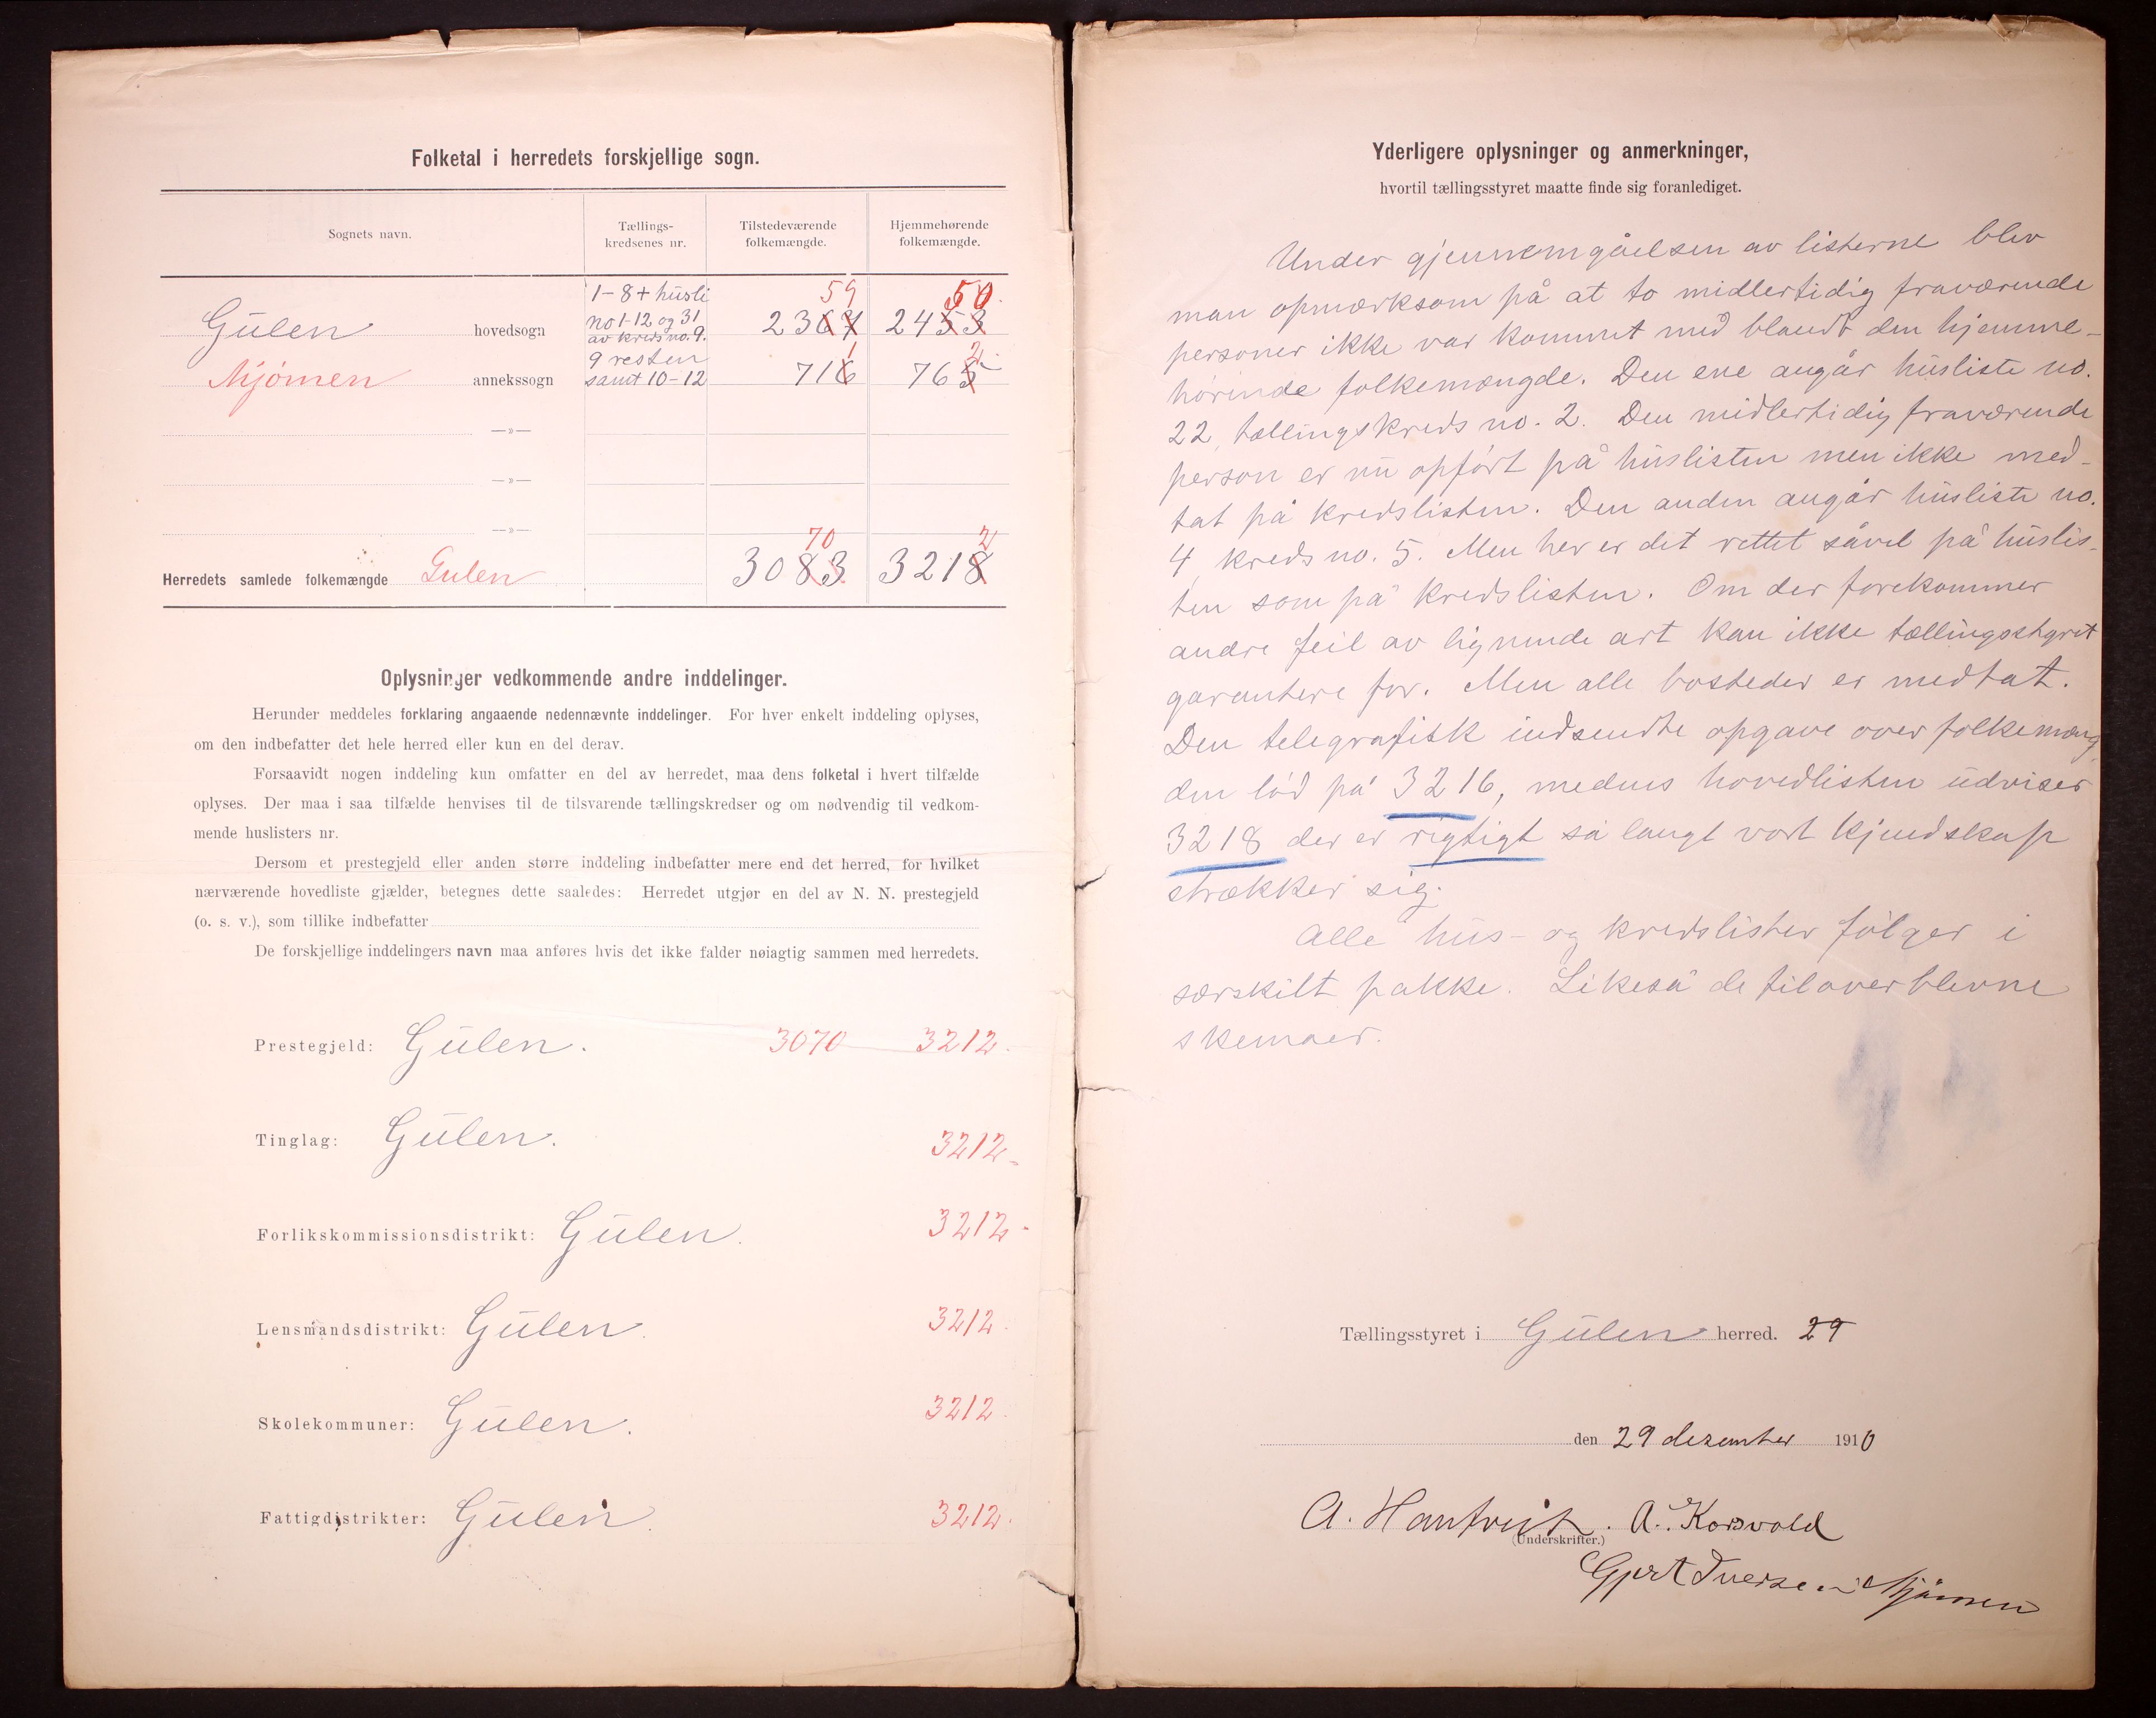 Folketal i herredets forskjellige sogn.
Sognets navn.
Tællings-
kredsenes nr.
Tilstedeværende
folkemængde.
Hjemmehørende
folkemængde.
Gulen hovedsogn
1-8 + husli
no 1-12 og 31
av kreds no. 9.
59
2367
50.
2453
Mjömen annekssogn
9 resten
samt 10-12
1
716
2
765
—»—
—»—
—»—
Herredets samlede folkemængde Gulen
70
3083
2
3218
Oplysninger vedkommende andre inddelinger.
Herunder meddeles forklaring angaaende nedennævnte inddelinger. For hver enkelt inddeling oplyses,
om den indbefatter det hele herred eller kun en del derav.
Forsaavidt nogen inddeling kun omfatter en del av herredet, maa dens folketal i hvert tilfælde
oplyses. Der maa i saa tilfælde henvises til de tilsvarende tællingskredser og om nødvendig til vedkom-
mende huslisters nr.
Dersom et prestegjeld eller anden større inddeling indbefatter mere end det herred, for hvilket
nærværende hovedliste gjælder, betegnes dette saaledes: Herredet utgjør en del av N. N. prestegjeld
(o. s. v.), som tillike indbefatter
De forskjellige inddelingers navn maa anføres hvis det ikke falder nøiagtig sammen med herredets.
Prestegjeld: Gulen. 3070 3212.
Tinglag: Gulen. 3212.
Forlikskommissionsdistrikt: Gulen. 3212.
Lensmandsdistrikt: Gulen. 3212.
Skolekommuner: Gulen. 3212.
Fattigdistrikter: Gulen. 3212.
Yderligere oplysninger og anmerkninger,
hvortil tællingsstyret maatte finde sig foranlediget.
Under gjennemgåelsen av listerne blev
man opmærksom på at to midlertidig fraværende
personer ikke var kommet med blandt den hjemme-
hörende folkemængde. Den ene angår husliste no.
22, tællingskreds no. 2. Den midlertidig fraværende
person er nu opfört på huslisten men ikke med-
tat på kredslisten. Den anden angår husliste no.
4 kreds no. 5. Men her er det rettet såvel på huslis-
ten som på kredslisten. Om der forekommer
andre feil av lignende art kan ikke tællingsstyret
garantere for. Men alle bosteder er medtat.
Den telegrafisk indsendte opgave over folkemæng
den löd på 3216, medens hovedlisten udviser
3218 der er rigtigt så langt vort kjendskap
strækker sig.
Alle hus- og kredslister fölger i
særskilt pakke. Likeså de tiloverblevne
skemaer.
Tællingsstyret i Gulen herred. 29
den 29 dezember 1910
A. Hantveit. A. Korsvold
(Underskrifter.)
Gjert Iversen Mjömen